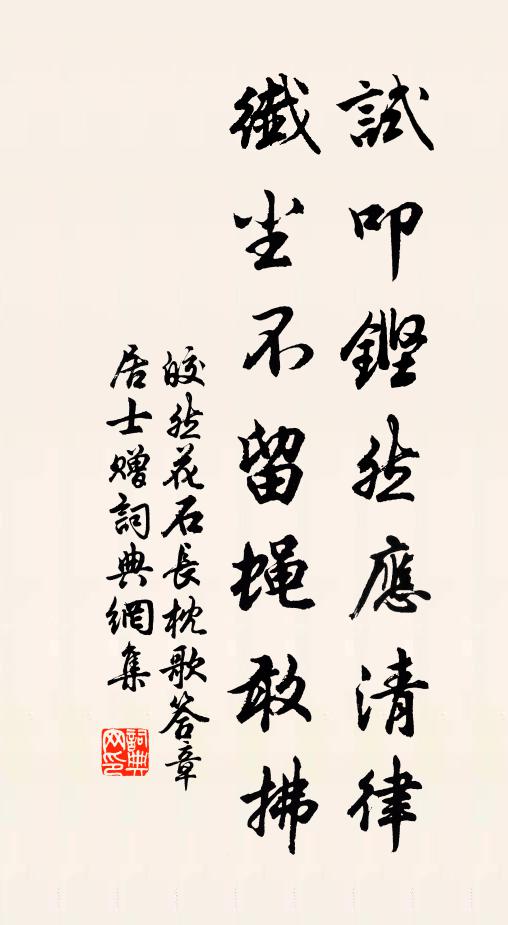 試叩鏗然應清律
纖尘不留蝇敢拂
皎然花石長枕歌答章
居士贈詞典網集
詞典網印